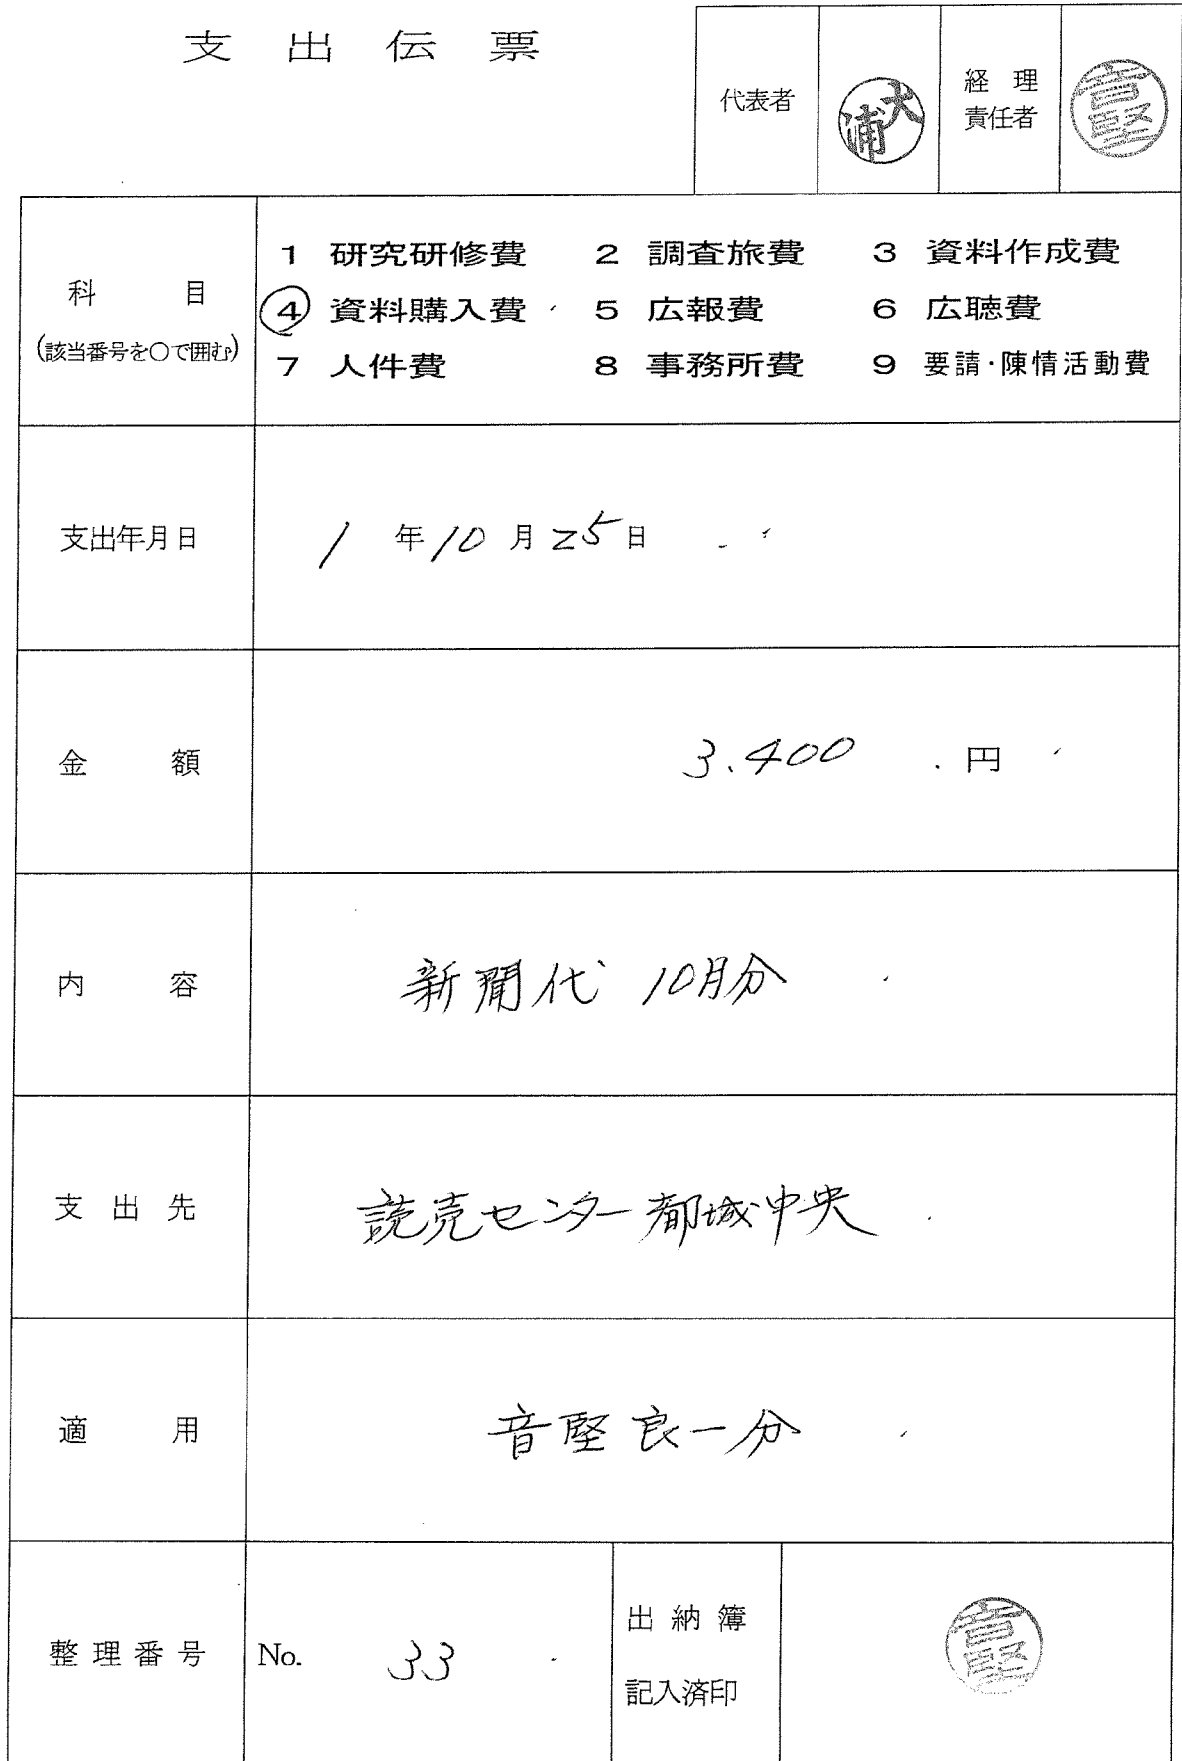 支出伝票
代表者
大浦
経理
責任者
音堅
科目
(該当番号を○で囲む)
1 研究研修費 2 調査旅費 3 資料作成費
④ 資料購入費 5 広報費 6 広聴費
7 人件費 8 事務所費 9 要請・陳情活動費
支出年月日 1年10月25日
金額 3.400円
内容 新聞代 10月分
支出先 読売センター都城中央
適用 音堅良一分
整理番号 No. 33
出納簿
記入済印
音堅